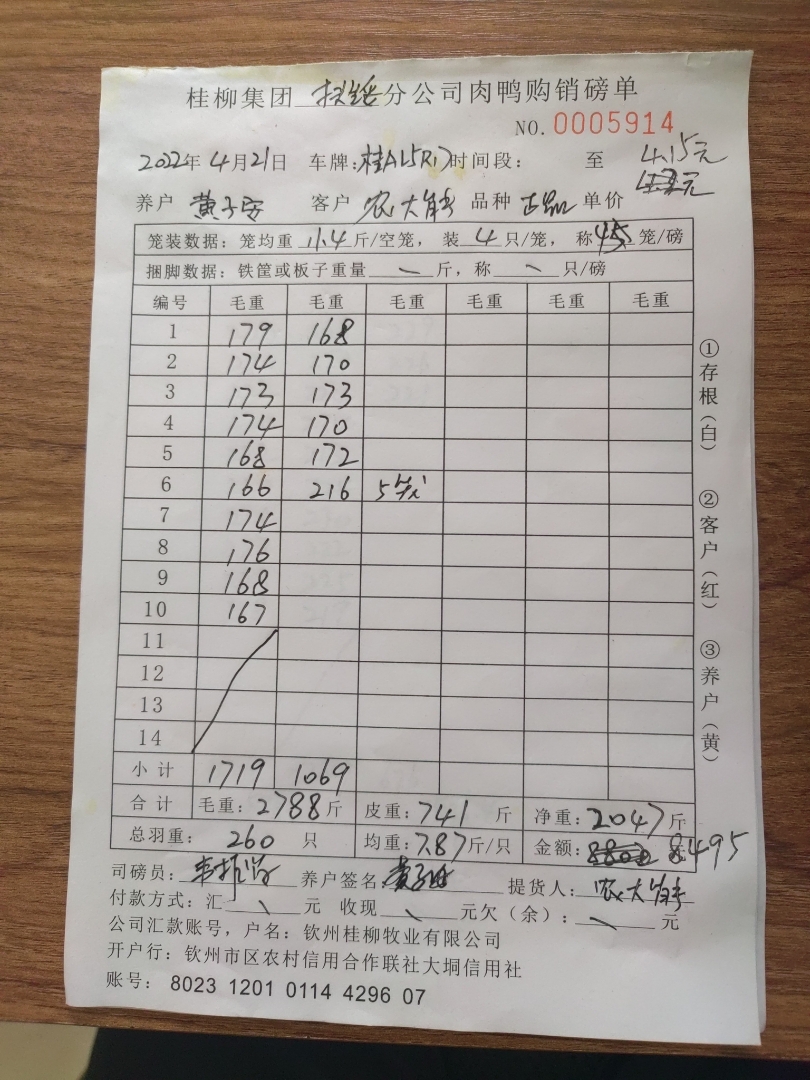 桂柳集团 扶绥 分公司肉鸭购销磅单
NO. 0005914
2022年 4月21日 车牌: 时间段: 至 4.15元
养户 黄子安 客户 农大 品种 正品 单价 元
笼装数据: 笼均重 11.4 斤/空笼, 装 4 只/笼, 称 笼/磅
捆脚数据: 铁筐或板子重量 \ 斤, 称 \ 只/磅
编号 毛重 毛重 毛重 毛重 毛重 毛重
1 179 168
2 174 170
3 173 173
4 174 170
5 168 172
6 166 216 5
7 174
8 176
9 168
10 167
11
12
13
14
小计 1719 1069
合计 毛重: 2788 斤 皮重: 741 斤 净重: 2047 斤
总羽重: 260 只 均重: 7.87 斤/只 金额: 8495
司磅员: 养户签名 提货人: 农大
付款方式: 汇 \ 元 收现 \ 元欠(余): \ 元
公司汇款账号, 户名: 钦州桂柳牧业有限公司
开户行: 钦州市区农村信用合作联社大垌信用社
账号: 8023 1201 0114 4296 07
①存根(白)
②客户(红)
③养户(黄)